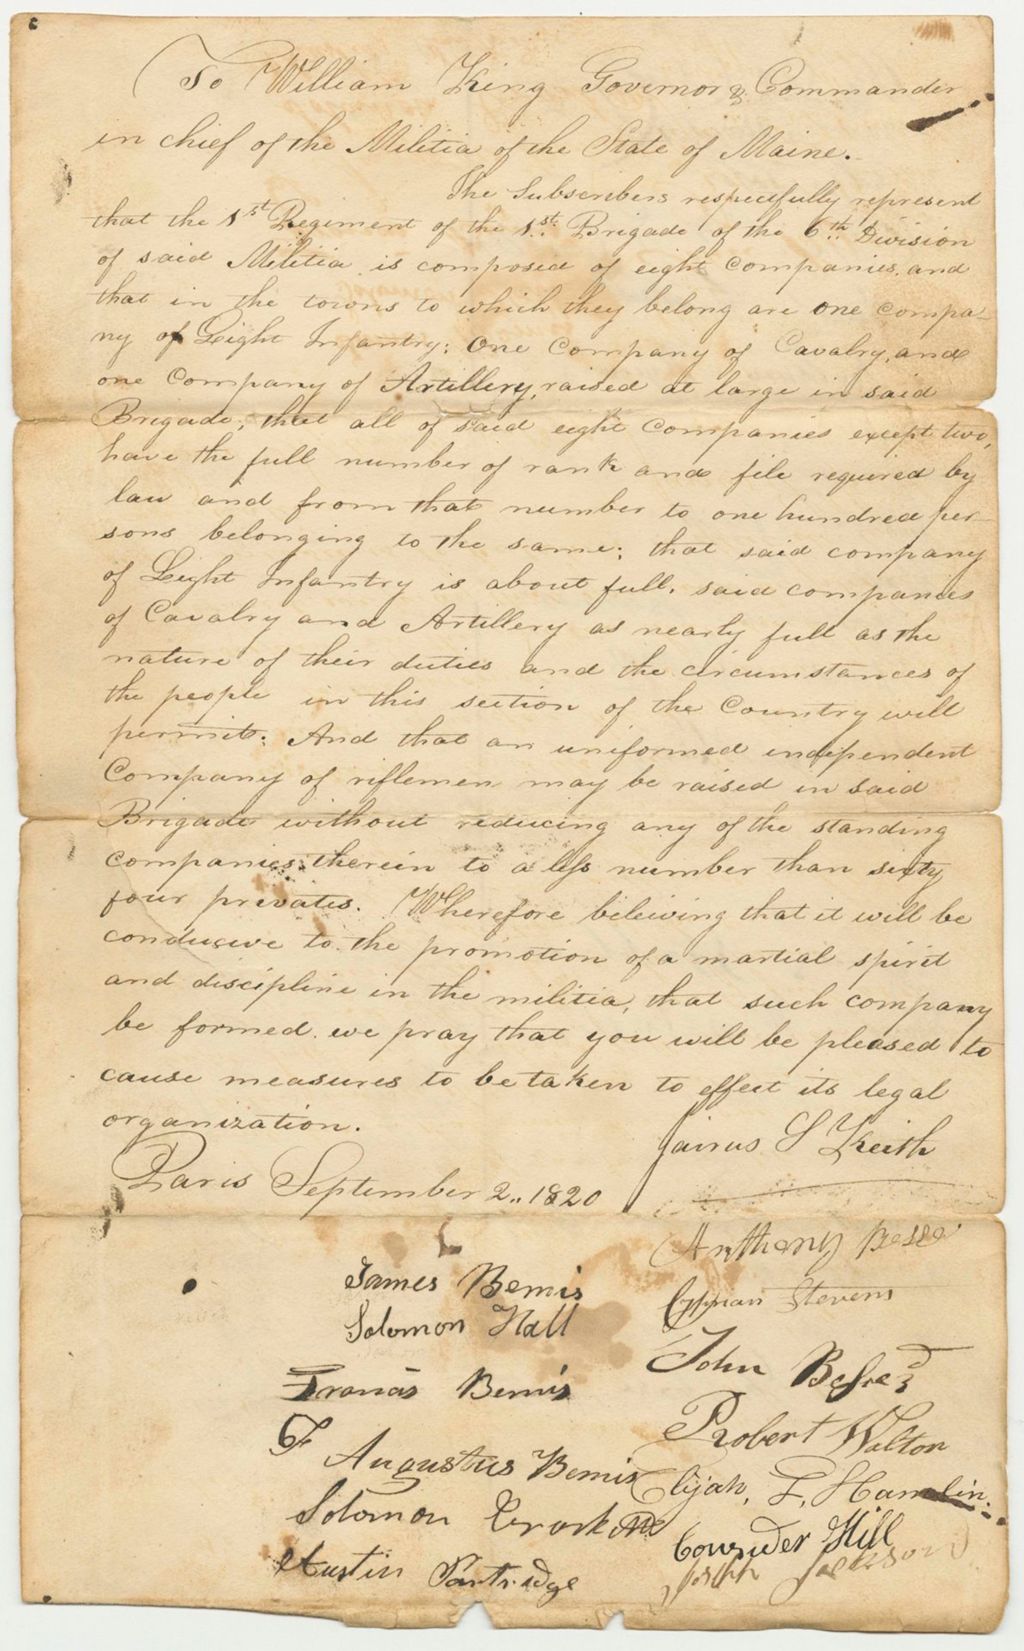 To William King Governor & Commander
in chief of the Militia of the State of Maine.
The Subscribers respectfully represent
that the 1st Regiment of the 1st Brigade of the 6th Division
of said Militia is composed of eight Companies, and
that in the towns to which they belong are one compa-
ny of Light Infantry; One Company of Cavalry, and
one Company of Artillery, raised at large in said
Brigade; that all of said eight companies except two,
have the full number of rank and file required by
law and from that number to one hundred per-
sons belonging to the same; that said company
of Light Infantry is about full, said companies
of Cavalry and Artillery as nearly full as the
nature of their duties and the circumstances of
the people in this section of the Country will
permit; And that an uniformed independent
Company of riflemen may be raised in said
Brigade without reducing any of the standing
companies therein to a less number than sixty
four privates. Wherefore beleiving that it will be
conducive to the promotion of a martial spirit
and discipline in the militia, that such company
be formed we pray that you will be pleased to
cause measures to be taken to effect its legal
organization.
Jairus S Keith
Paris September 2,, 1820
Anthony Besse
James Bemis
Cyprian Stevens
Solomon Hall
John Besse 3d
Francis Bemis
Robert Walton
F Augustus Bemis
Elijah, L, Hamlin.
Solomon
Consider Hill
Austin Partridge
Joseph Jackson